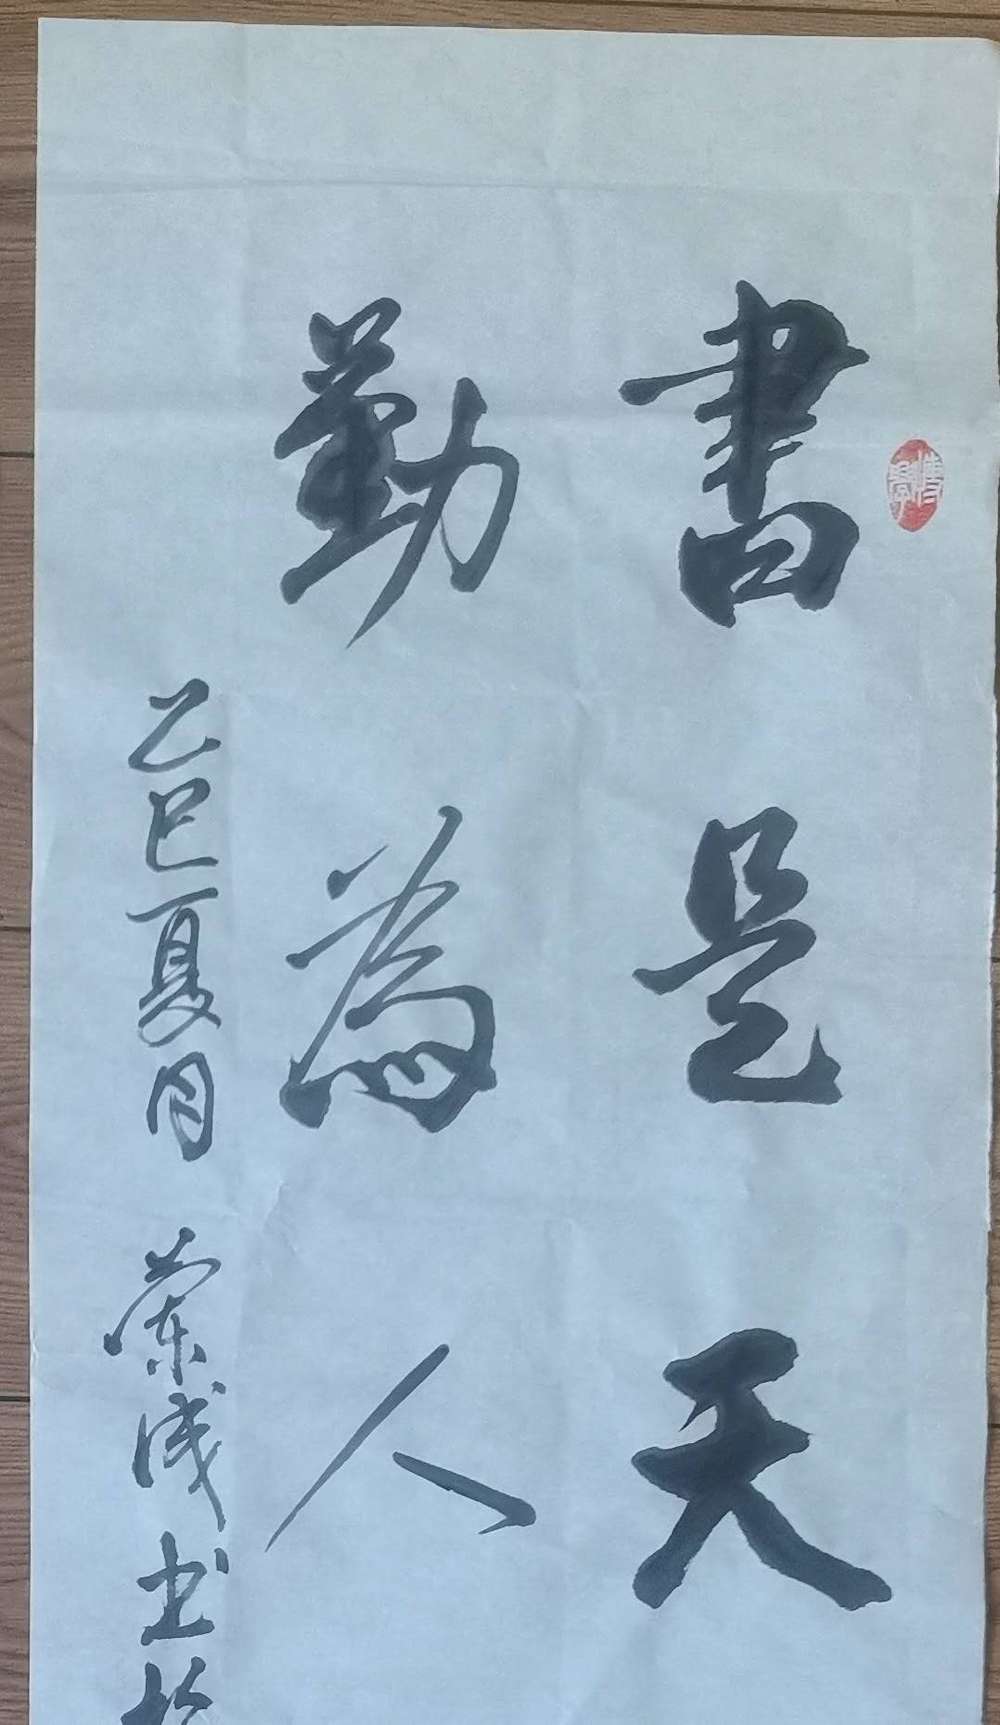 博學
書是天
勤為人
乙巳夏月 榮成书於